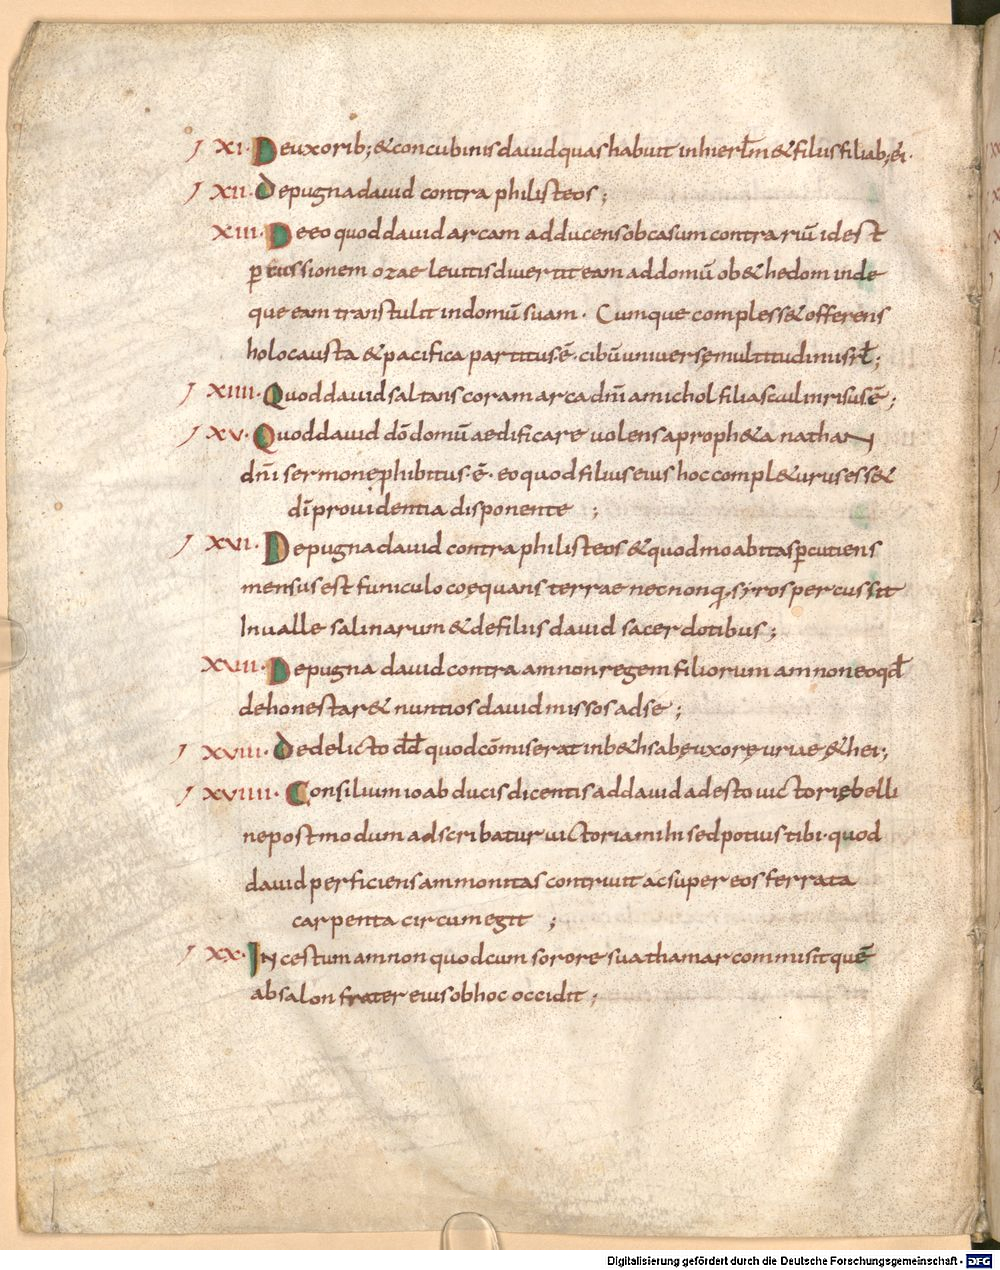 XI. De uxorib; & concubinis dauid quas habuit in hierl̄m & filiis filiab; ei.
XII. de pugna dauid contra philisteos;
XIII. De eo quod dauid arcam adducens ob casum contrariū id est
ꝑcussionem ozae leuitis diuertit eam ad domū ob&hedom inde
que eam transtulit in domū suam. Cumque compless& offerens
holocausta & pacifica partitus ē. cibū uniuersę multitudinis isrl̄;
XIIII. Quod dauid saltans coram arca dn̄i a michol filia saul inrisus ē;
XV. Quod dauid dō domū aedificare uolens a proph&a nathan
dn̄i sermone phibitus ē. eo quod filius eius hoc compl&urus ess&
dī prouidentia disponente ;
XVI. De pugna dauid contra philisteos & quod moabitas ꝑcutiens
mensus est funiculo coęquans terrae necnonq; syros percussit
In ualle salinarum & de filiis dauid sacerdotibus;
XVII. De pugna dauid contra amnon regem filiorum amnon eo qd̄
dehonestar& nuntios dauid missos ad se;
XVIII. de delicto dd̄ quod cōmiserat in b&hsabę uxorę uriae &hei;
XVIIII. Consilium ioab ducis dicentis ad dauid adesto uictorię belli
ne postmodum adscribatur uictoria mihi sed potius tibi. quod
dauid perficiens ammonitas contriuit ac super eos ferrata
carpenta circumegit ;
XX. Incestum amnon quod cum sorore sua thamar commisit quē
absalon frater eius ob hoc occidit;
Digitalisierung gefördert durch die Deutsche Forschungsgemeinschaft - DFG